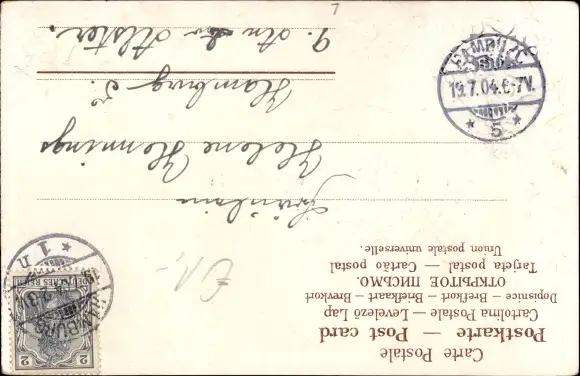 Carte Postale
Postkarte — Post card
Cartolina Postale — Levelező Lap
Dopisnice — Brefkort — Briefkaart — Brevkort
ОТКРЫТОЕ ПИСЬМО.
Tarjeta postal — Cartão postal
Union postale universelle.
DEUTSCHES REICH
2 2
HAMBURG
1 n
Fräulein
Helene Hennings
Hamburg
9. An der Alster.
HAMBURG
19.7.04.6-7V.
* 5 *
7